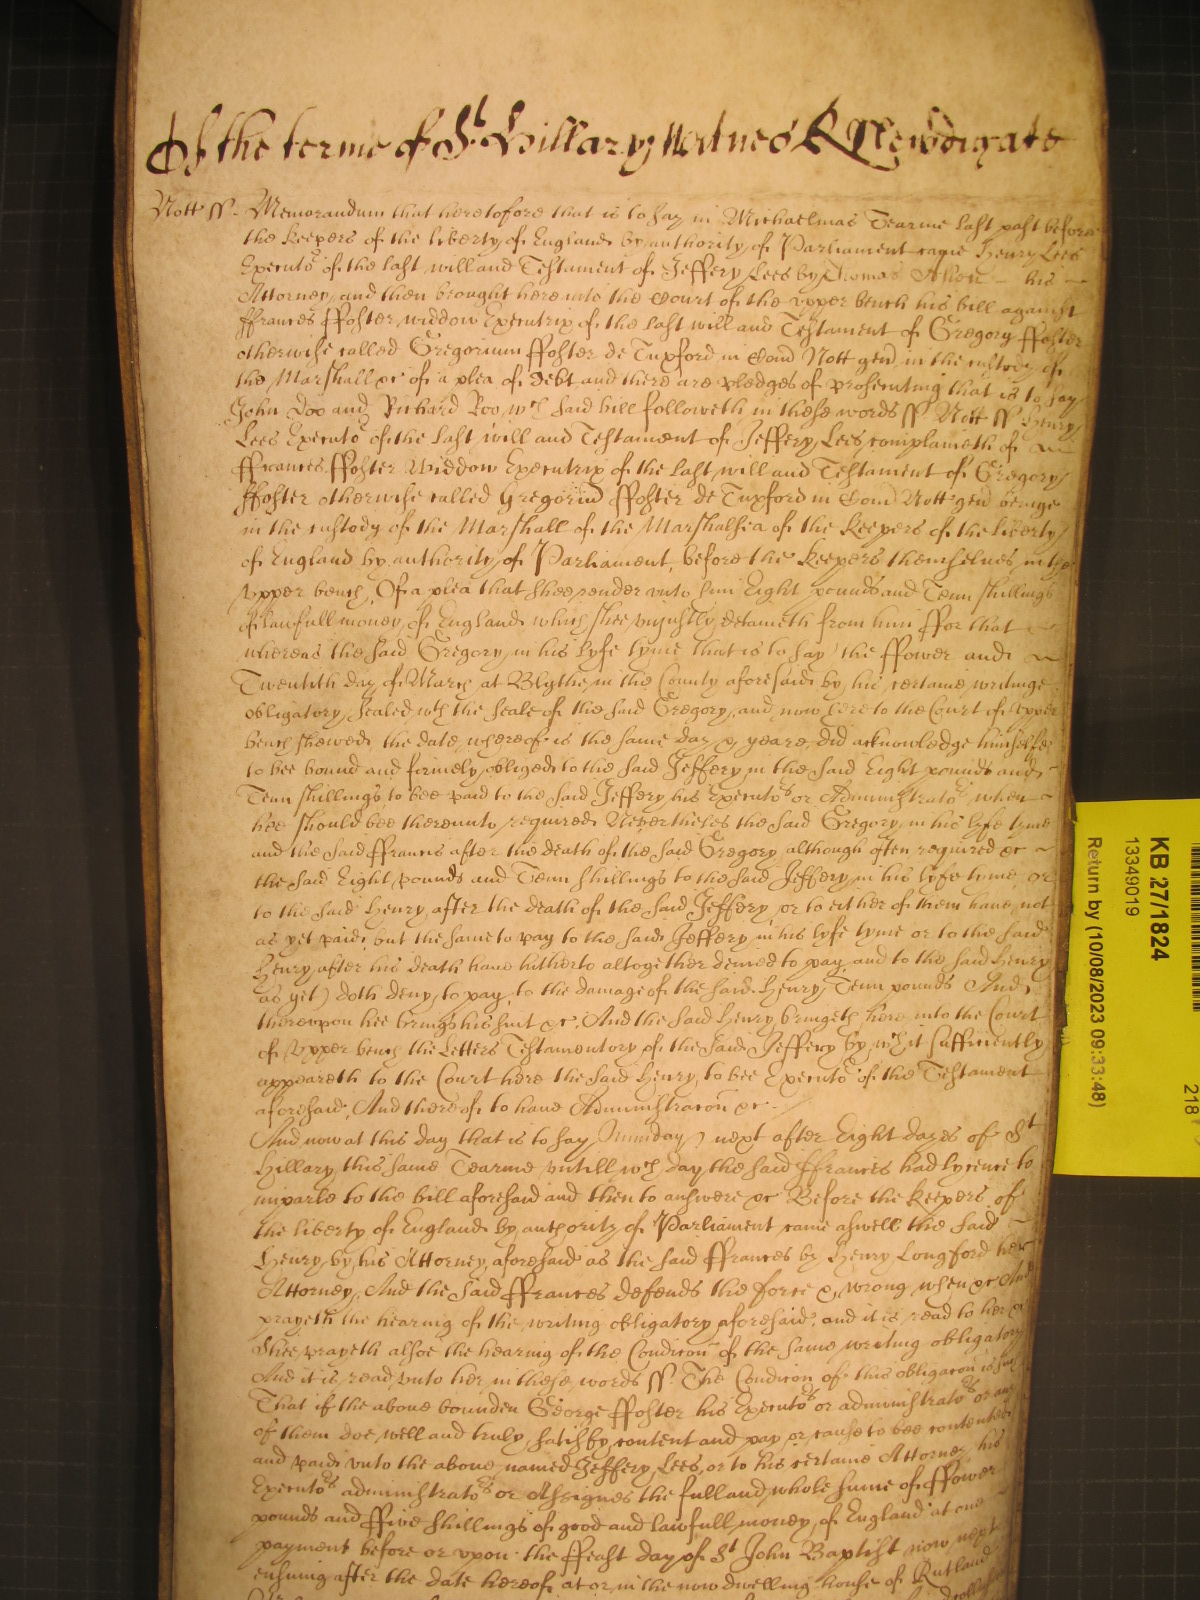 Of the terme of St Hillary Witnes R Newdigate
Nott ss. Memorandum that heretofore that is to say in Michaelmas Tearme last past before
the keepers of the liberty of England by authority of Parliament came Henry Lees
Executor of the last will and Testament of Jeffery Lees by Thomas his
Attorney and then brought here into the Court of the vpper bench his bill against
ffrances ffoster widdow Executrix of the last will and Testament of Gregory ffoster
otherwise called Gregorium ffoster de Tuxford in Com Nott gen in the custody of
the Marshall &c of a plea of debt and there are pledges of prosecuting that is to say
John Doo and Richard Roo, wch said bill followeth in these words ss Nott ss Henry
Lees Executor of the last will and Testament of Jeffery Lees complaineth of
ffrances ffoster Widdow Executrix of the last will and Testament of Gregory
ffoster otherwise called Gregoriu ffoster de Tuxford in Com Nott gen beinge
in the custody of the Marshall of the Marshalsea of the keepers of the liberty
of England by authority of Parliament, before the keepers themselves in the
vpper bench, Of a plea that shee render vnto him Eight pounds and Tenn shillings
of lawfull money of England which shee vniustly detaineth from him ffor that
whereas the said Gregory in his lyfe tyme that is to say the ffower and
Twentith day of March at Blythe in the County aforesaid by his certaine writinge
obligatory sealed wth the seale of the said Gregory, and now here to the Court of vpper
bench shewed the date whereof is the same day & yeare, did acknowledge himselfe
to bee bound and firmely obliged to the said Jeffery in the said Eight pounds and
Tenn shillings to bee paid to the said Jeffery his Executors or Administrators when
hee should bee thereunto required Neverthelesse the said Gregory in his lyfe tyme
and the said ffrancis after the death of the said Gregory although often required &c
the said Eight pounds and Tenn shillings to the said Jeffery in his lyfe tyme, or
to the said Henry after the death of the said Jeffery or to either of them have not
as yet paid, but the same to pay to the said Jeffery in his lyfe tyme or to the said
Henry after his death have hitherto altogether denied to pay, and to the said Henry
as yet doth deny to pay to the damage of the said Henry Tenn pounds And
therevpon hee brings his suit &c, And the said Henry bringeth here into the Court
of vpper bench the Letters Testamentory of the said Jeffery by wch it sufficiently
appeareth to the Court here the said Henry to bee Executor of the Testament
aforesaid, And thereof to have Administracon &c
And now at this day that is to say next after Eight dayes of St
Hillary this same Tearme vntill wch day the said ffrances had lycence to
imparle to the bill aforesaid and then to answere &c Before the keepers of
the liberty of England by authority of Parliament came aswell the said
Henry by his Attorney aforesaid as the said ffrances by Henry Longford her
Attorney, And the said ffrances defends the force & wrong when &c And
prayeth the hearing of the writing obligatory aforesaid, and it is read to her &c
Shee prayeth alsoe the hearing of the Condicon of the same writing obligatory
And it is read vnto her in these words ss The Condicon of this obligacon is such
That if the above bounden George ffoster his Executors or administrators or any
of them doe well and truly satisfy content and pay or cause to bee contented
and paid vnto the above named Jeffery Lees or to his certaine Attorney his
Executors administrators or Assignes the full and whole sume of ffower
pounds and ffive shillings of good and lawfull money of England at one
payment before or vpon the ffeast day of St John Baptist now next
ensuing after the date hereof at or in the now dwelling house of Rutland
KB 27/1824
13349019
Return by (10/08/2023 09:33:48)
218